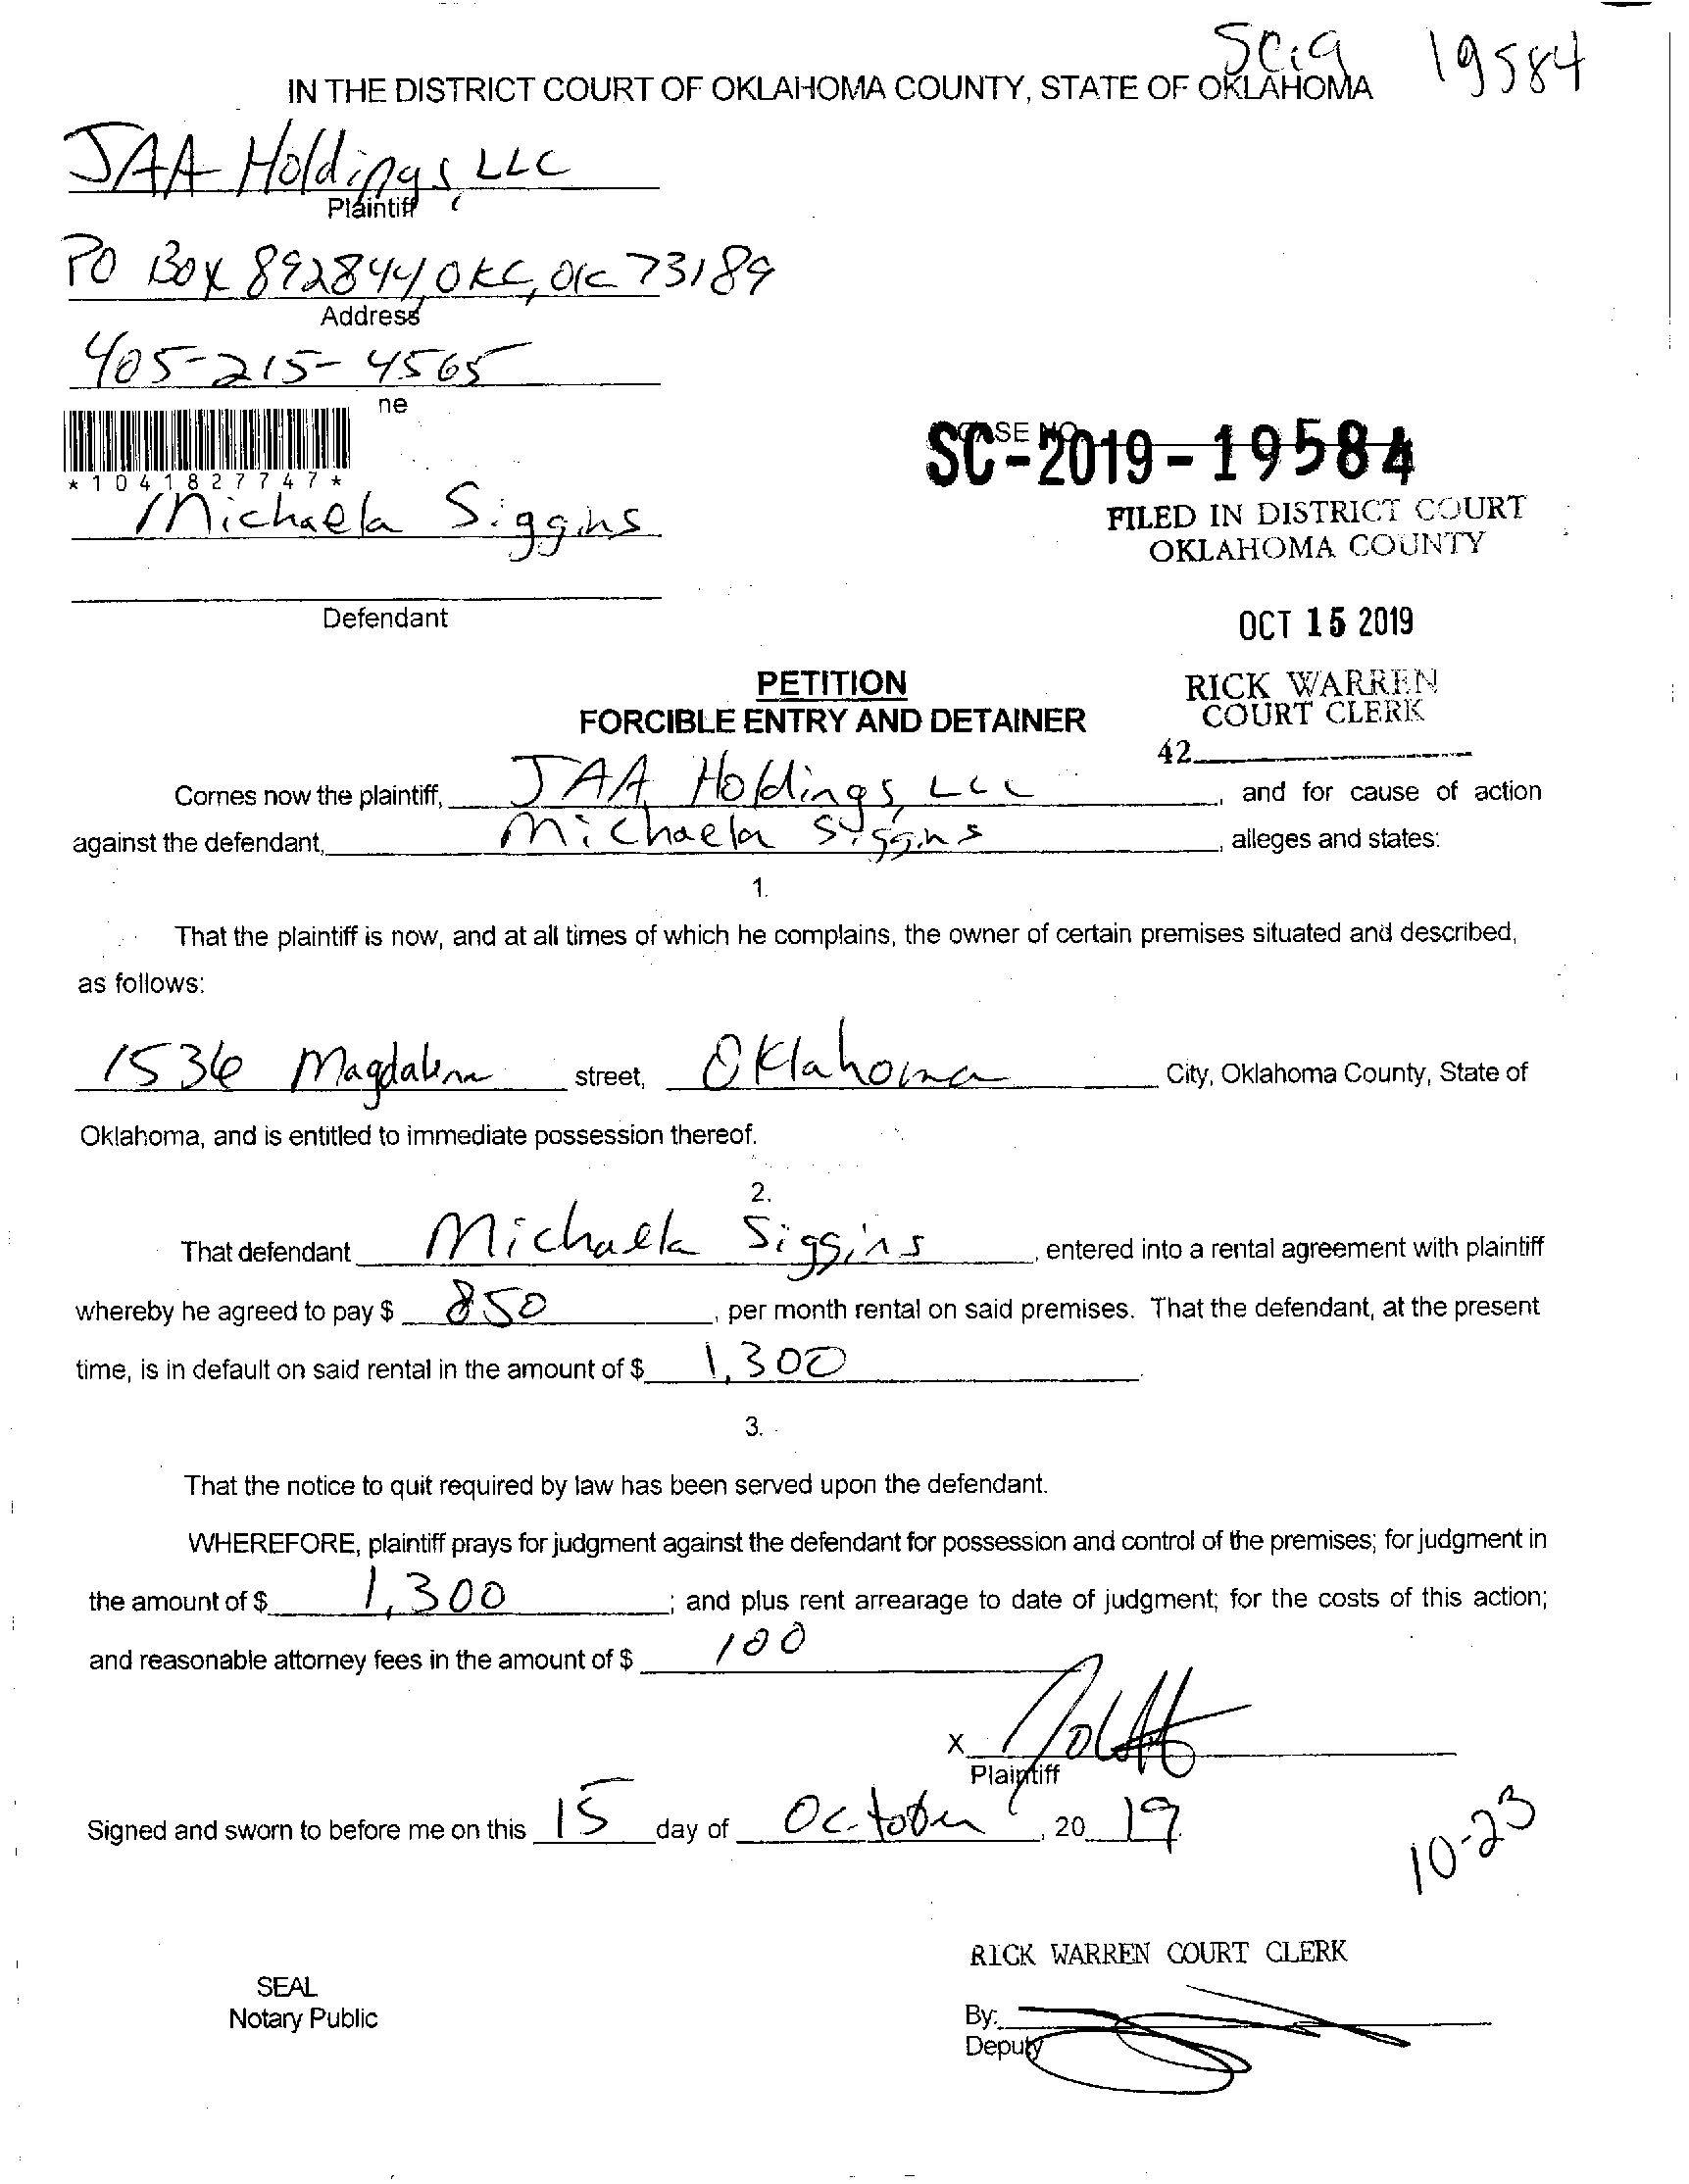 SC19 19584
IN THE DISTRICT COURT OF OKLAHOMA COUNTY, STATE OF OKLAHOMA
JAA Holdings, LLC
Plaintiff
PO Box 892844, OKC, OK 73189
Address
405-215-4565
ne
*1041827747*
SC-2019-19584
CASE NO.
Michaela Siggins
FILED IN DISTRICT COURT
OKLAHOMA COUNTY
Defendant
OCT 15 2019
PETITION
FORCIBLE ENTRY AND DETAINER
RICK WARREN
COURT CLERK
42
Comes now the plaintiff, JAA Holdings, LLC, and for cause of action
against the defendant, Michaela Siggins, alleges and states:
1.
That the plaintiff is now, and at all times of which he complains, the owner of certain premises situated and described,
as follows:
1536 Magdalena street, Oklahoma City, Oklahoma County, State of
Oklahoma, and is entitled to immediate possession thereof.
2.
That defendant Michaela Siggins, entered into a rental agreement with plaintiff
whereby he agreed to pay $ 850, per month rental on said premises. That the defendant, at the present
time, is in default on said rental in the amount of $ 1,300.
3.
That the notice to quit required by law has been served upon the defendant.
WHEREFORE, plaintiff prays for judgment against the defendant for possession and control of the premises; for judgment in
the amount of $ 1,300; and plus rent arrearage to date of judgment; for the costs of this action;
and reasonable attorney fees in the amount of $ 100
X
Plaintiff
Signed and sworn to before me on this 15 day of October, 20 19.
10-23
RICK WARREN COURT CLERK
SEAL
Notary Public
By:
Deputy